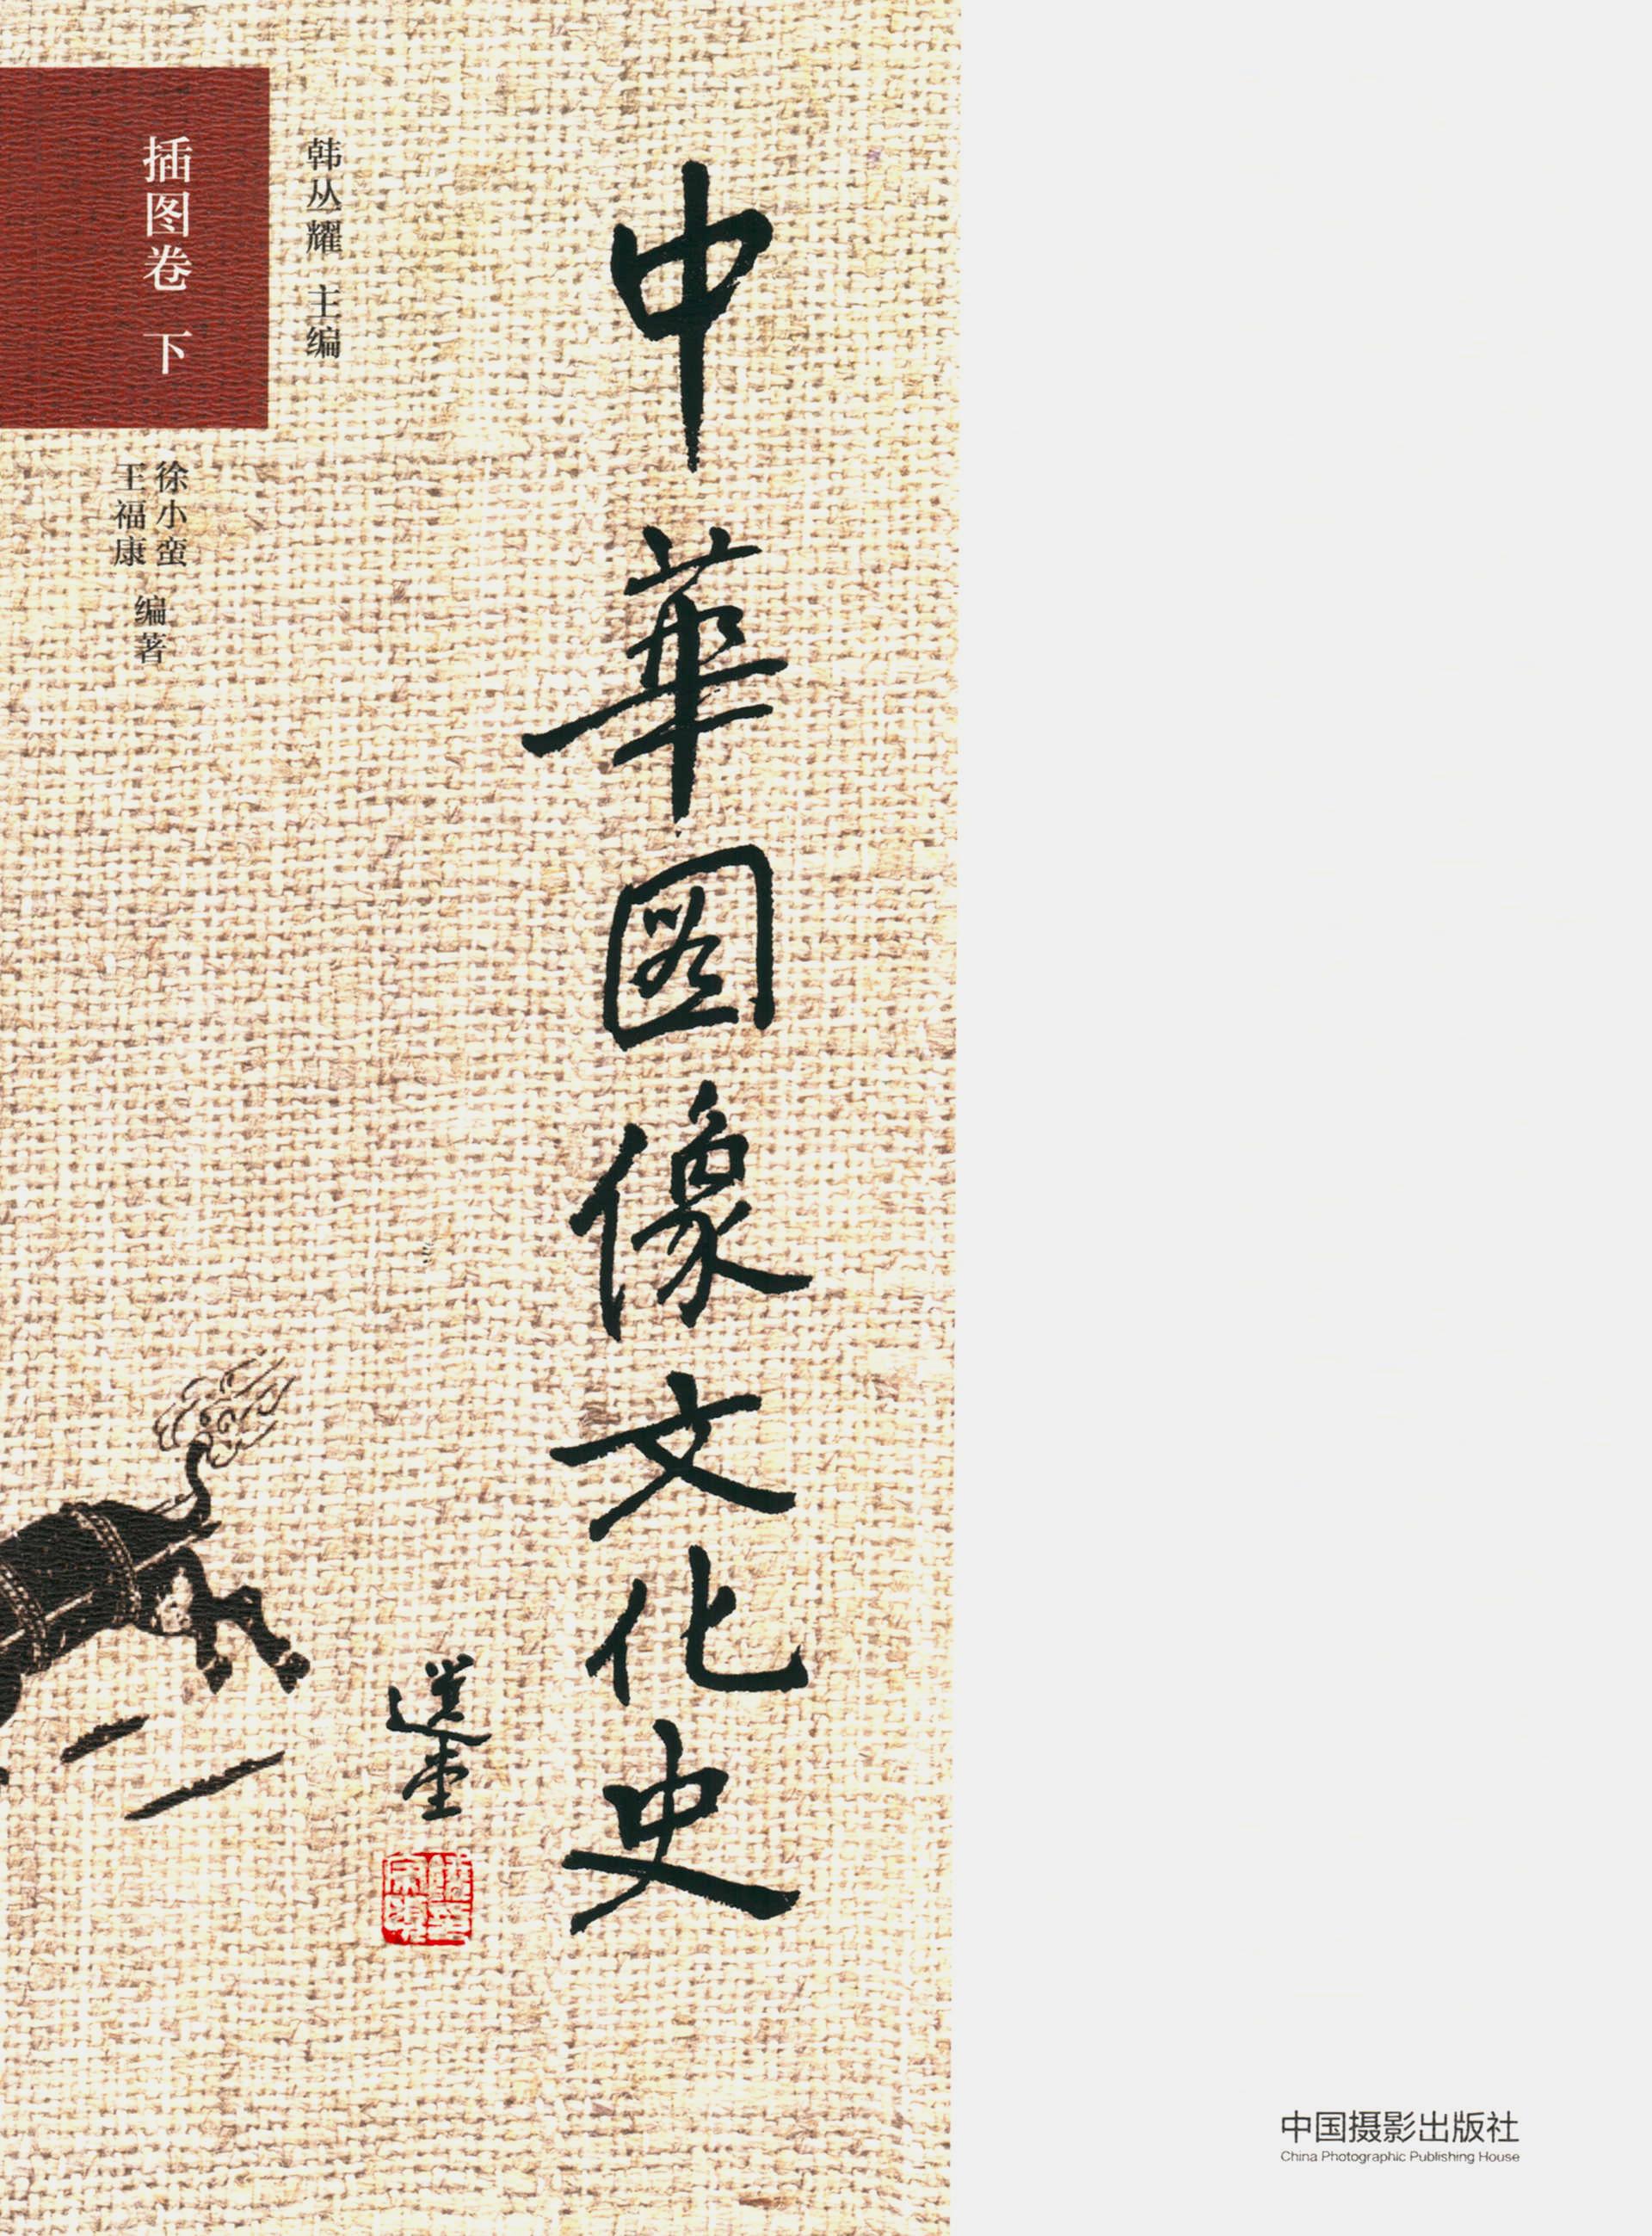 中華图像文化史
選堂
韩丛耀 主编
插图卷 下
徐小蛮
王福康
编著
中国摄影出版社
China Photographic Publishing House